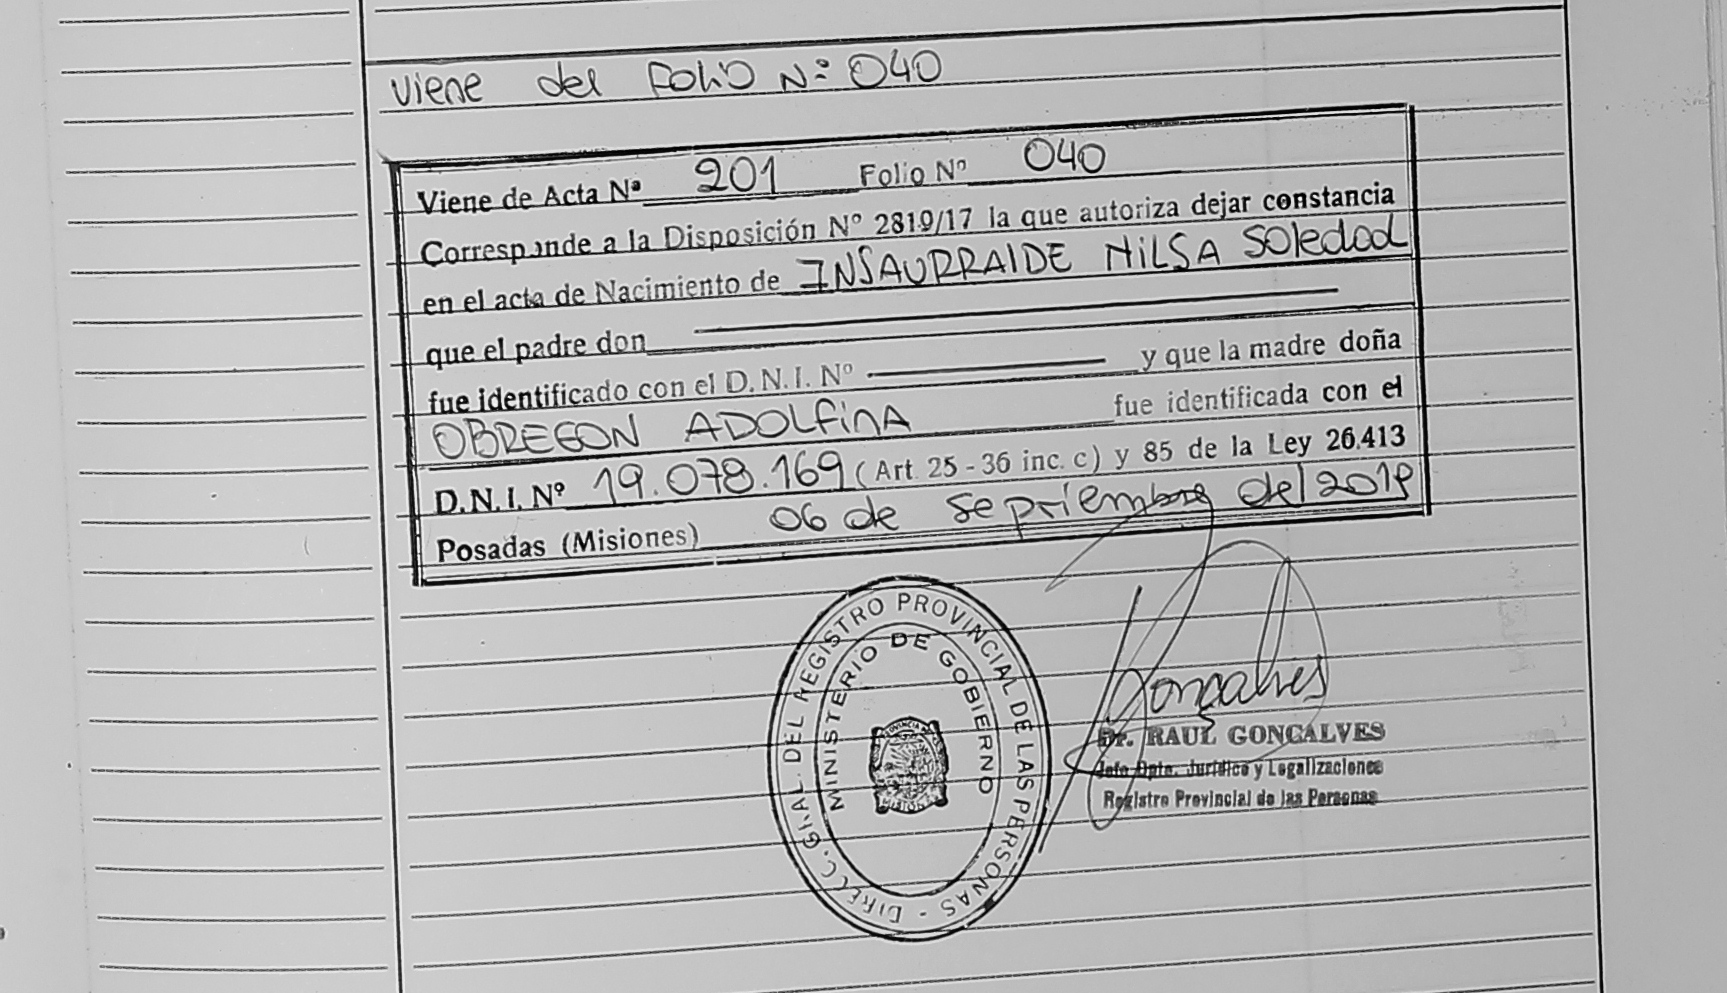 Viene del Folio N° 040
Viene de Acta Nº 201 Folio Nº 040
Corresponde a la Disposición Nº 2819/17 la que autoriza dejar constancia
en el acta de Nacimiento de INSAURRALDE NILSA SOledad
que el padre don
fue identificado con el D.N.I. Nº y que la madre doña
OBREGON ADOLFinA fue identificada con el
D.N.I. Nº 19.078.169 (Art. 25 - 36 inc. c) y 85 de la Ley 26.413
Posadas (Misiones) 06 de Septiembre del 2019
DIRECC. GRAL. DEL REGISTRO PROVINCIAL DE LAS PERSONAS -
MINISTERIO DE GOBIERNO
PROVINCIA DE
MISIONES
Gonçalves
Dr. RAUL GONÇALVES
Jefe Dpto. Jurídico y Legalizaciones
Registro Provincial de las Personas